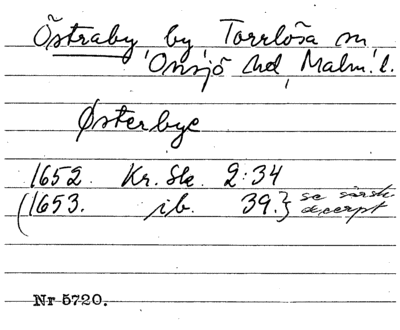 Östraby by, Torrlösa sn,
Onsjö hd, Malm. l.
Østerbye
1652. Kr. Sk. 2:34
(1653. ib. 39.} se särsk.
excerpt
Nr 5720.